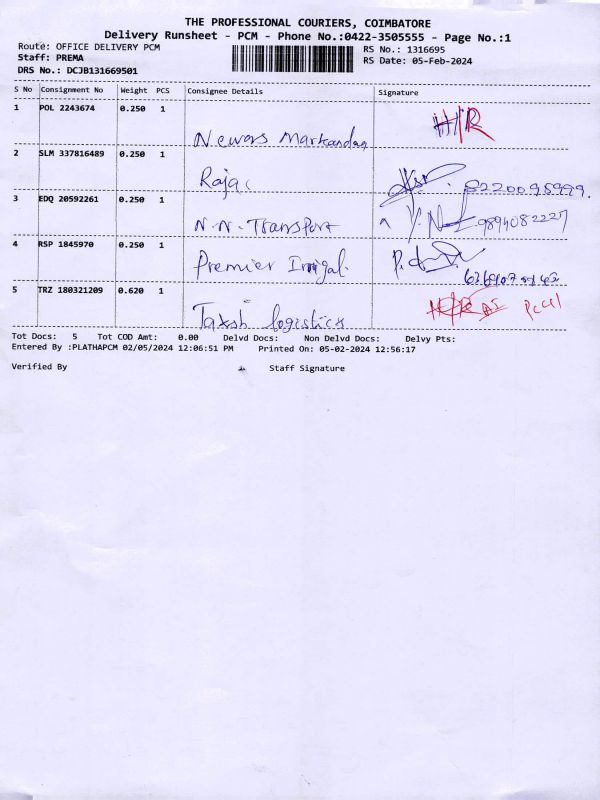 THE PROFESSIONAL COURIERS, COIMBATORE
Delivery Runsheet - PCM - Phone No.:0422-3505555 - Page No.:1
Route: OFFICE DELIVERY PCM RS No.: 1316695
Staff: PREMA RS Date: 05-Feb-2024
DRS No.: DCJB131669501
S No Consignment No Weight PCS Consignee Details Signature
1 POL 2243674 0.250 1
H/R
Newars
2 SLM 337816489 0.250 1
Raja
3 EDQ 20592261 0.250 1
N.N. Transport 9894082227
4 RSP 1845970 0.250 1
Premier
5 TRZ 180321209 0.620 1
Taksh logistics
Tot Docs: 5 Tot COD Amt: 0.00 Delvd Docs: Non Delvd Docs: Delvy Pts:
Entered By :PLATHAPCM 02/05/2024 12:06:51 PM Printed On: 05-02-2024 12:56:17
Verified By Staff Signature